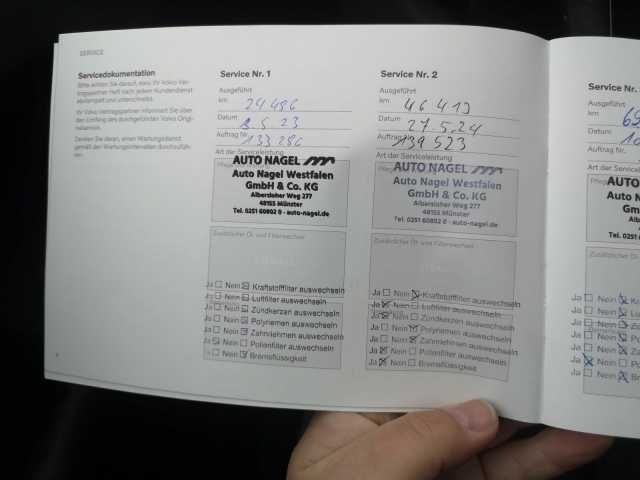 SERVICE
Servicedokumentation
Bitte achten Sie darauf, dass Ihr Volvo Ver-
tragspartner Heft nach jedem Kundendienst
abstempelt und unterschreibt.
Ihr Volvo Vertragspartner informiert Sie über
den Umfang des durchgeführten Volvo Origi-
nalservice.
Denken Sie daran, einen Wartungsdienst
gemäß den Wartungsintervallen durchzufüh-
ren.
Service Nr. 1
Ausgeführt
km 24486
Datum 8.5.23
Auftrag Nr. 133286
Art der Serviceleistung
AUTO NAGEL
Auto Nagel Westfalen
GmbH & Co. KG
Albersloher Weg 277
48155 Münster
Tel. 0251 60802 0 - auto-nagel.de
Zusätzlicher Öl- und Filterwechsel
Ja Nein Kraftstofffilter auswechseln
Ja Nein Luftfilter auswechseln
Ja Nein Zündkerzen auswechseln
Ja Nein Polyriemen auswechseln
Ja Nein Zahnriemen auswechseln
Ja Nein Pollenfilter auswechseln
Nein Bremsflüssigkeit
Service Nr. 2
Ausgeführt
km 46413
Datum 27.5.24
Auftrag Nr. 139523
Art der Serviceleistung
AUTO NAGEL
Auto Nagel Westfalen
GmbH & Co. KG
Albersloher Weg 277
48155 Münster
Tel. 0251 60802 0 - auto-nagel.de
Zusätzlicher Öl- und Filterwechsel
Ja Nein Kraftstofffilter auswechseln
Ja Nein Luftfilter auswechseln
Ja Nein Zündkerzen auswechseln
Ja Nein Polyriemen auswechseln
Ja Nein Zahnriemen auswechseln
Ja Nein Pollenfilter auswechseln
Ja Nein Bremsflüssigkeit
Service N
Ausgeführt
km
Datum
Auftrag Nr.
Art der Service
AUTO N
Auto Na
Gmb
Albers
481
Tel. 0251
Zusätzlicher
Ja Nein
Ja Nein
Ja Nein
Ja Nein
Ja Nein
Ja Nein
Ja Nein